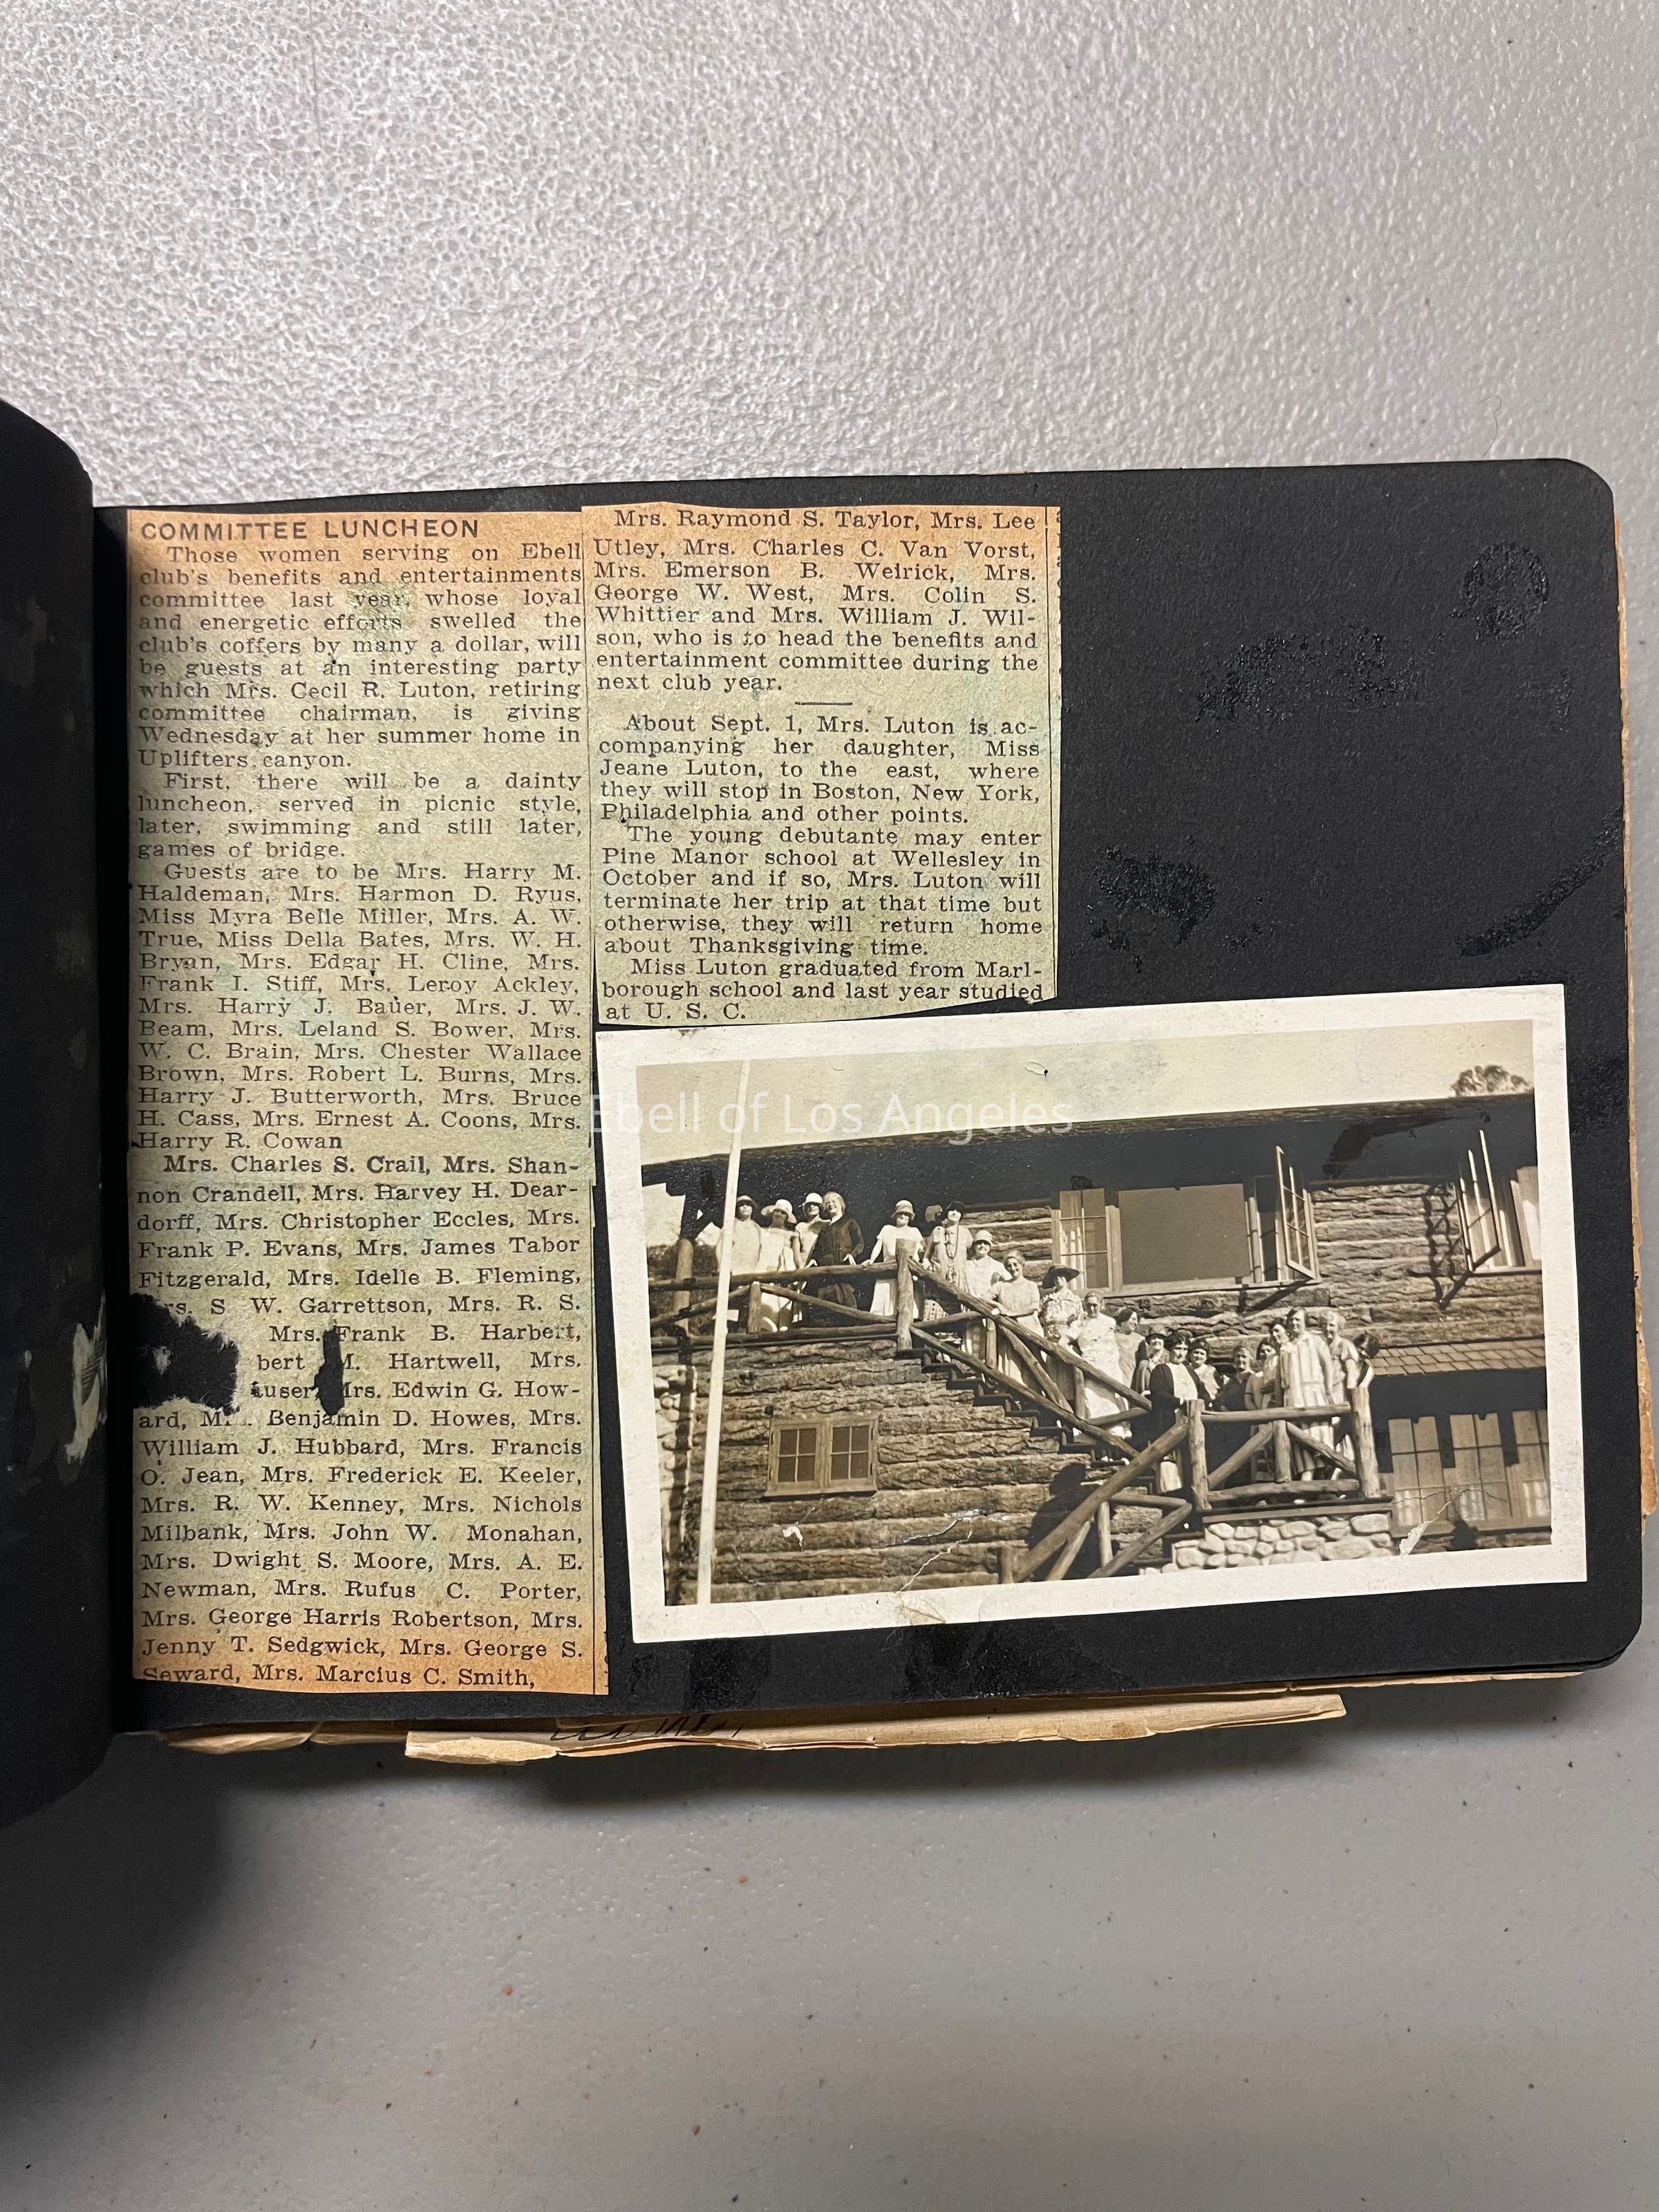 COMMITTEE LUNCHEON
Those women serving on Ebell
club's benefits and entertainments
committee last year, whose loyal
and energetic efforts swelled the
club's coffers by many a dollar, will
be guests at an interesting party
which Mrs. Cecil R. Luton, retiring
committee chairman, is giving
Wednesday at her summer home in
Uplifters canyon.
First, there will be a dainty
luncheon, served in picnic style,
later, swimming and still later,
games of bridge.
Guests are to be Mrs. Harry M.
Haldeman, Mrs. Harmon D. Ryus,
Miss Myra Belle Miller, Mrs. A. W.
True, Miss Della Bates, Mrs. W. H.
Bryan, Mrs. Edgar H. Cline, Mrs.
Frank I. Stiff, Mrs. Leroy Ackley,
Mrs. Harry J. Bauer, Mrs. J. W.
Beam, Mrs. Leland S. Bower, Mrs.
W. C. Brain, Mrs. Chester Wallace
Brown, Mrs. Robert L. Burns, Mrs.
Harry J. Butterworth, Mrs. Bruce
H. Cass, Mrs. Ernest A. Coons, Mrs.
Harry R. Cowan
Mrs. Charles S. Crail, Mrs. Shan-
non Crandell, Mrs. Harvey H. Dear-
dorff, Mrs. Christopher Eccles, Mrs.
Frank P. Evans, Mrs. James Tabor
Fitzgerald, Mrs. Idelle B. Fleming,
rs. S W. Garrettson, Mrs. R. S.
Mrs. Frank B. Harbert,
bert M. Hartwell, Mrs.
auser, Mrs. Edwin G. How-
ard, M Benjamin D. Howes, Mrs.
William J. Hubbard, Mrs. Francis
O. Jean, Mrs. Frederick E. Keeler,
Mrs. R. W. Kenney, Mrs. Nichols
Milbank, Mrs. John W. Monahan,
Mrs. Dwight S. Moore, Mrs. A. E.
Newman, Mrs. Rufus C. Porter,
Mrs. George Harris Robertson, Mrs.
Jenny T. Sedgwick, Mrs. George S.
Seward, Mrs. Marcius C. Smith,
Mrs. Raymond S. Taylor, Mrs. Lee
Utley, Mrs. Charles C. Van Vorst,
Mrs. Emerson B. Weirick, Mrs.
George W. West, Mrs. Colin S.
Whittier and Mrs. William J. Wil-
son, who is to head the benefits and
entertainment committee during the
next club year.
About Sept. 1, Mrs. Luton is ac-
companying her daughter, Miss
Jeane Luton, to the east, where
they will stop in Boston, New York,
Philadelphia and other points.
The young debutante may enter
Pine Manor school at Wellesley in
October and if so, Mrs. Luton will
terminate her trip at that time but
otherwise, they will return home
about Thanksgiving time.
Miss Luton graduated from Marl-
borough school and last year studied
at U. S. C.
Ebell of Los Angeles